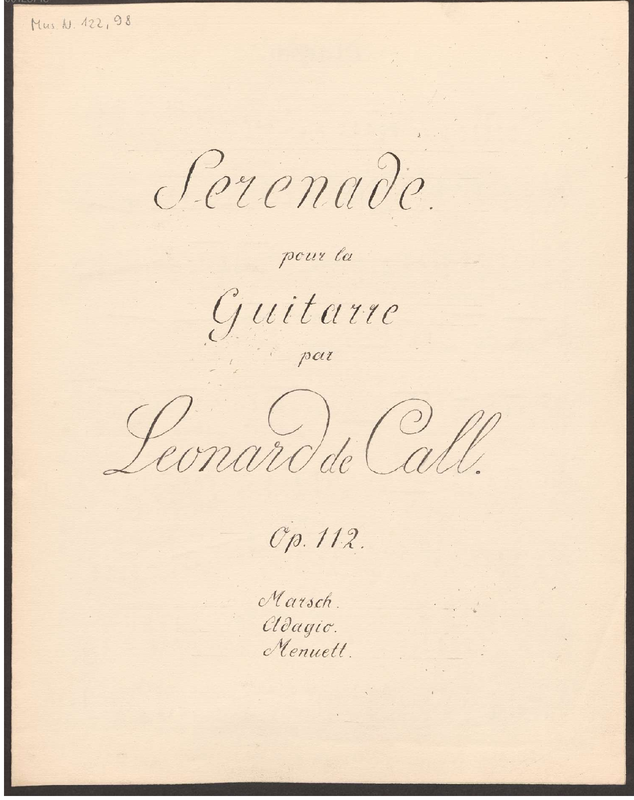 Mus. N. 122,98
Serenade.
pour la
Guitarre
par
Leonard de Call.
Op. 112.
Marsch.
Adagio.
Menuett.